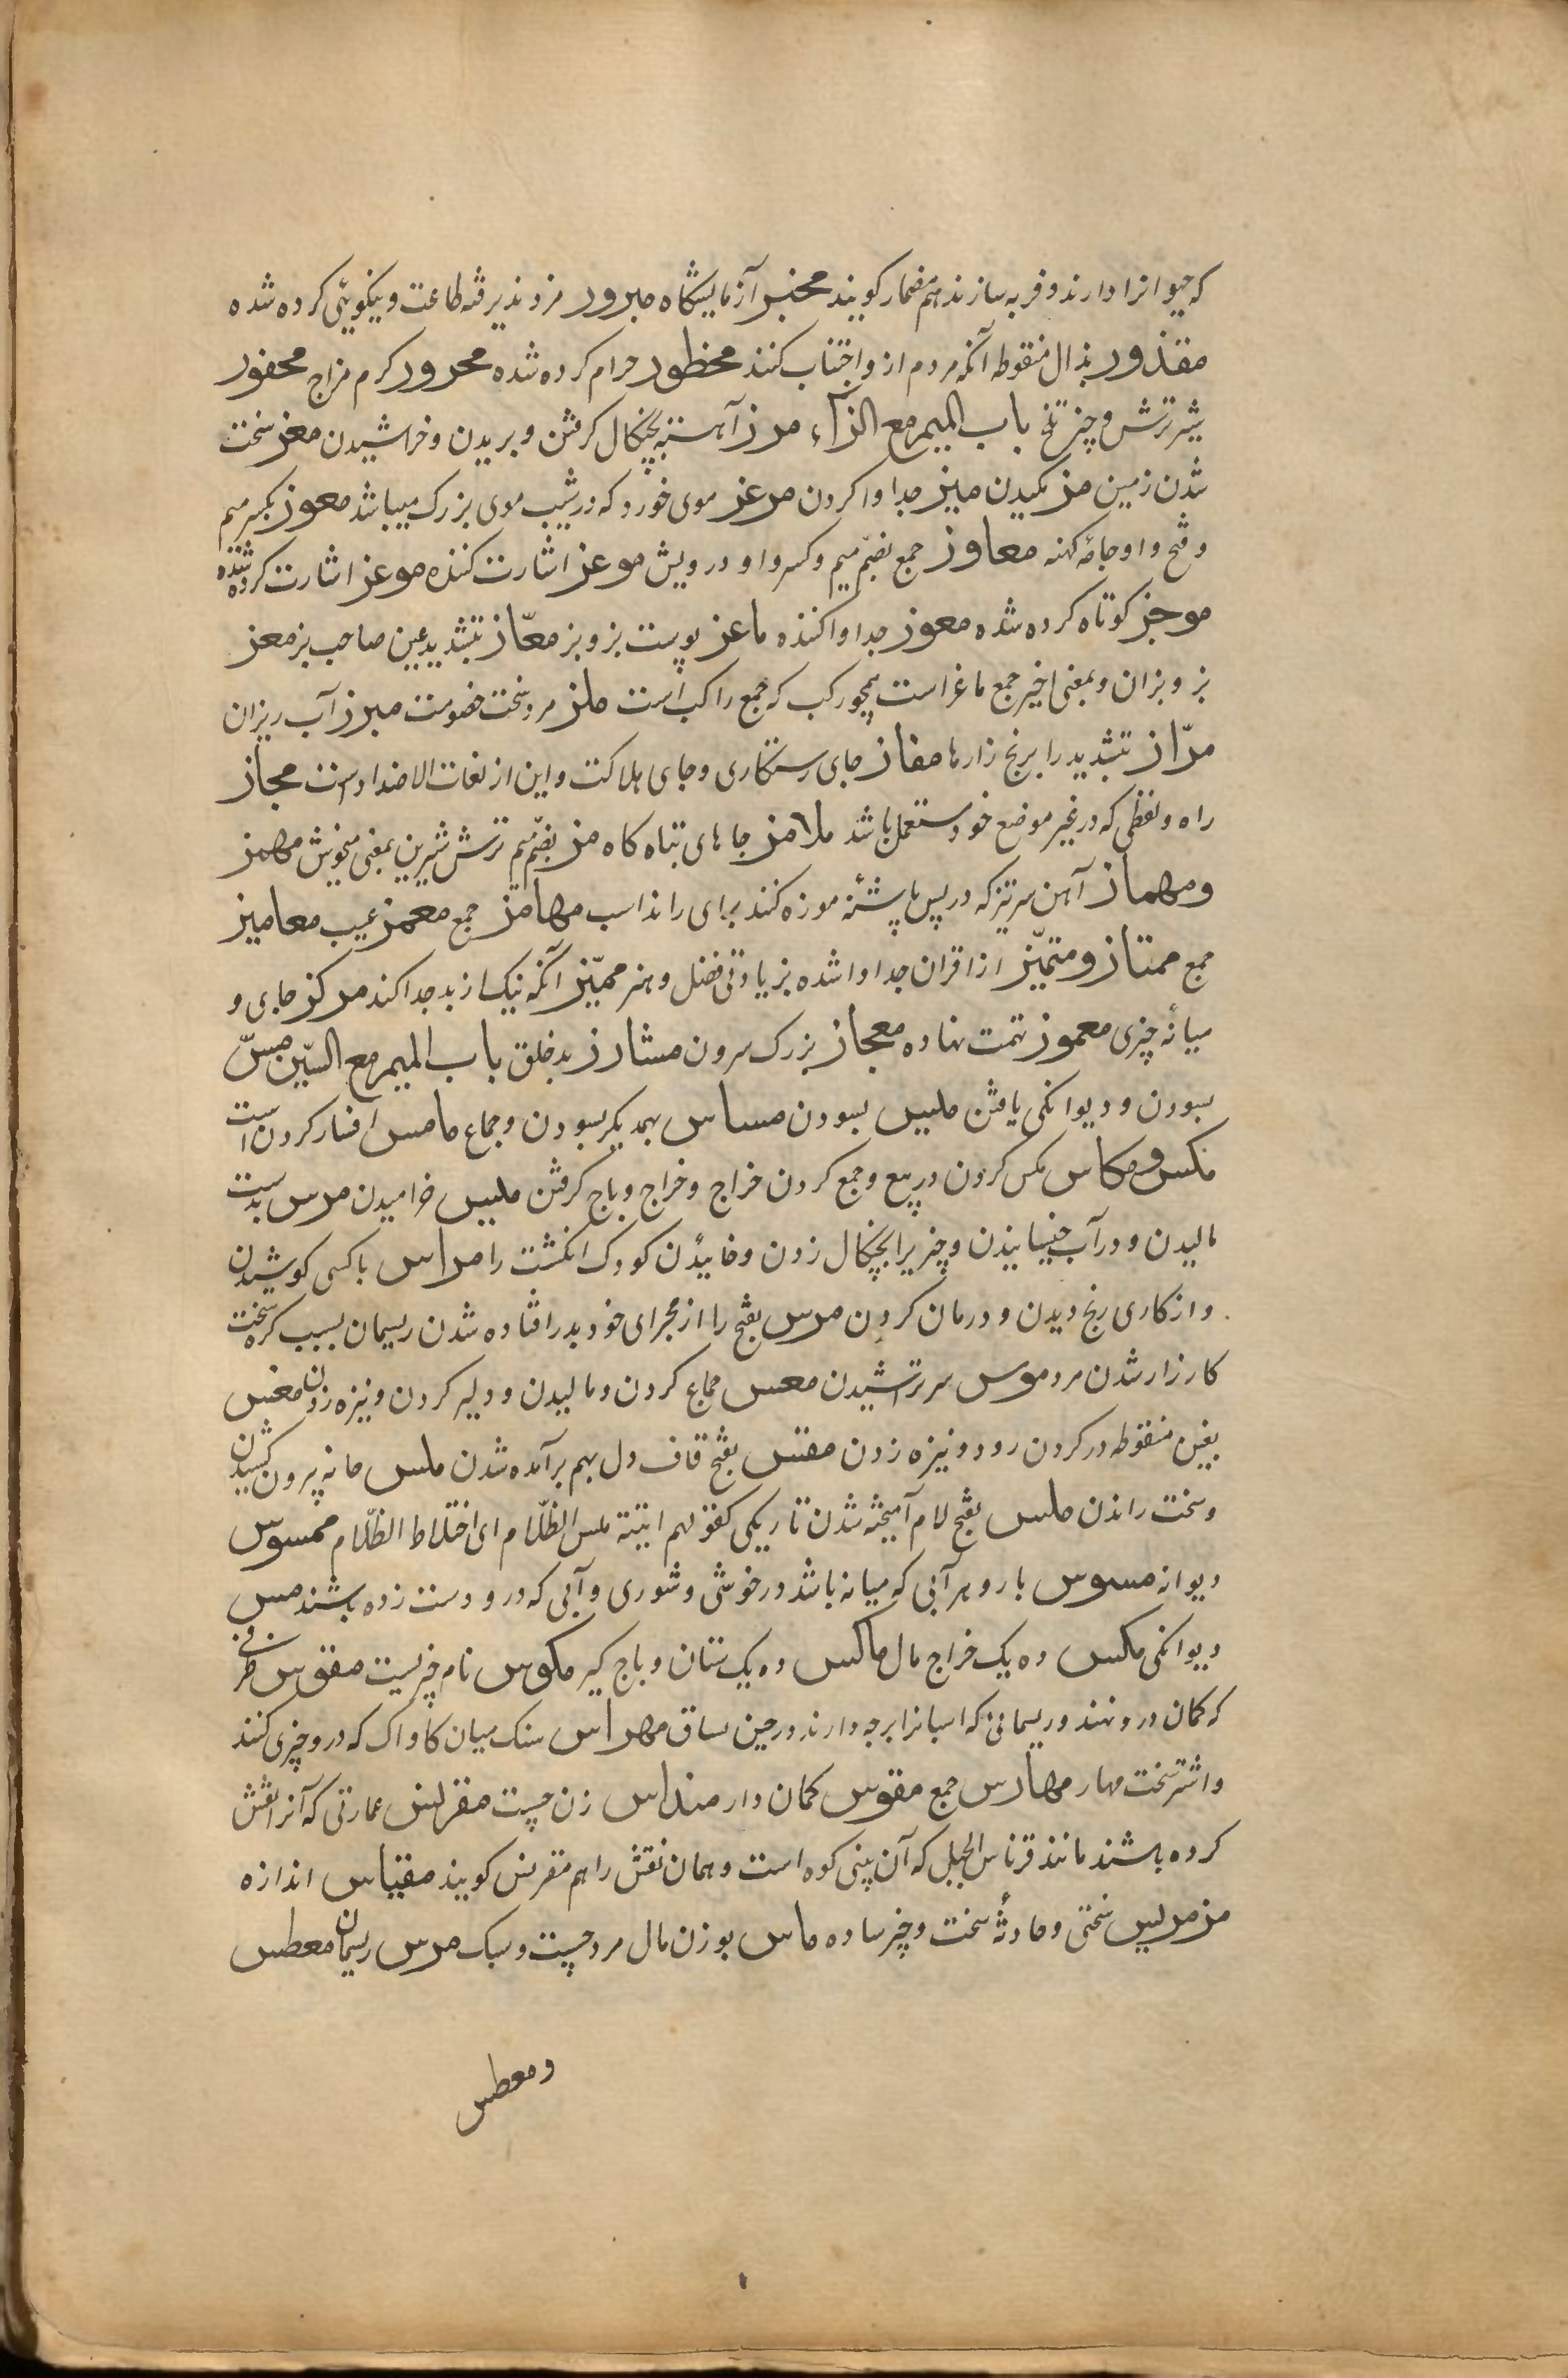 که حیوانرا دارند و فربه سازند هم مضمار کویند مخبر آزمایشگاه مبرور مزد پذیرفته طاعت و نیکویئی کرده شده
مقذور بذال منقوطه آنکه مردم ازو اجتناب کنند محظور حرام کرده شده محرور کرم مزاج محفور
شیر ترش و چیز تلخ باب المیم مع الزآء مرز آهسته بچنکال کرفتن و بریدن و خراشیدن معز سخت
شدن زمین مز مکیدن میز جدا وا کردن مرعز موی خورد که در شیب موی بزرک میباشد معوز بکسر میم
و فتح واو جامهٔ کهنه معاوز جمع بضمّ میم و کسر واو درویش موعز اشارت کننده موعز اشارت کرده شده
موجز کوتاه کرده شده معوز جدا وا کننده ماعز پوست بز و بز معّاز بتشدید عین صاحب بز معز
بز و بزان و بمعنی اخیر جمع ماعز است همچو رکب که جمع راکب است ملز مرد سخت خصومت مبرز آب ریزان
مرّاز بتشدید را برنج زارها مفاز جای رستکاری و جای هلاکت و این از لغات الاضداد است مجاز
راه و لفظی که در غیر موضع خود مستعمل باشد ملامز جاهای تباه کاه مز بضمّ میم ترش شیرین بمعنی میخوش مهمز
و مهماز آهن سر تیز که در پس پاشنهٔ موزه کنند برای راند اسب مهامز جمع معمز عیب معامیز
جمع ممتاز و متمیّز از اقران جدا وا شده بزیادتی فضل و هنر ممیّز آنکه نیک از بد جدا کند مرکز جای و
میانهٔ چیزی معموز تهمت نهاده معجاز بزرک سرون مشارز بد خلق باب المیم مع السّین مسّ
بسودن و دیوانکی یافتن ملس بسودن مساس بهمدیکر بسودن و جماع مامس افسار کردن است
مکس و مکاس مکس کردن در بیع و جمع کردن خراج و خراج و باج کرفتن میس خرامیدن مرس بدست
مالیدن و در آب خیسانیدن و چیزیرا بچنکال زدن و خائیدن کودک انکشت را مراس با کسی کوشیدن
و از کاری رنج دیدن و درمان کردن مرس بفتح را از مجرای خود بدر افتاده شدن ریسمان بسبب کره سخت
کارزار شدن مرد موس سر تراشیدن معس جماع کردن و مالیدن و دلیر کردن و نیزه زدن مغس
بغین منقوطه درد کردن روده و نیزه زدن مقس بفتح قاف دل بهم برآمده شدن ملس خایه بیرون کشیدن
و سخت راندن ملس بفتح لام آمیخته شدن تاریکی کقولهم اتیته ملس الظّلام ای اختلاط الظّلام ممسوس
دیوانه مسوس بارو هر آبی که میانه باشد در خوشی و شوری و آبی که درو دست زده باشند مس
دیوانکی مکس ده یک خراج مال ماکس ده یک ستان و باج کیر مکوس نام چیزیست مقوس ظرفی
که کمان درو نهند و ریسمانی که اسبانرا برجه دارند در حین سباق مهراس سنک میان کاواک که درو چیزی کنند
و اشتر سخت مهار مهارس جمع مقوس کمان دار منداس زن چست مقرنس عمارتی که آنرا نقش
کرده باشند مانند قرناس الجبل که آن بینی کوه است و همان نقش را هم مقرنس کویند مقیاس اندازه
مرمریس سختی و حادثهٔ سخت و چیز ساده ماس بوزن مال مرد چست و سبک مرس ریسمان معطس
و معطس